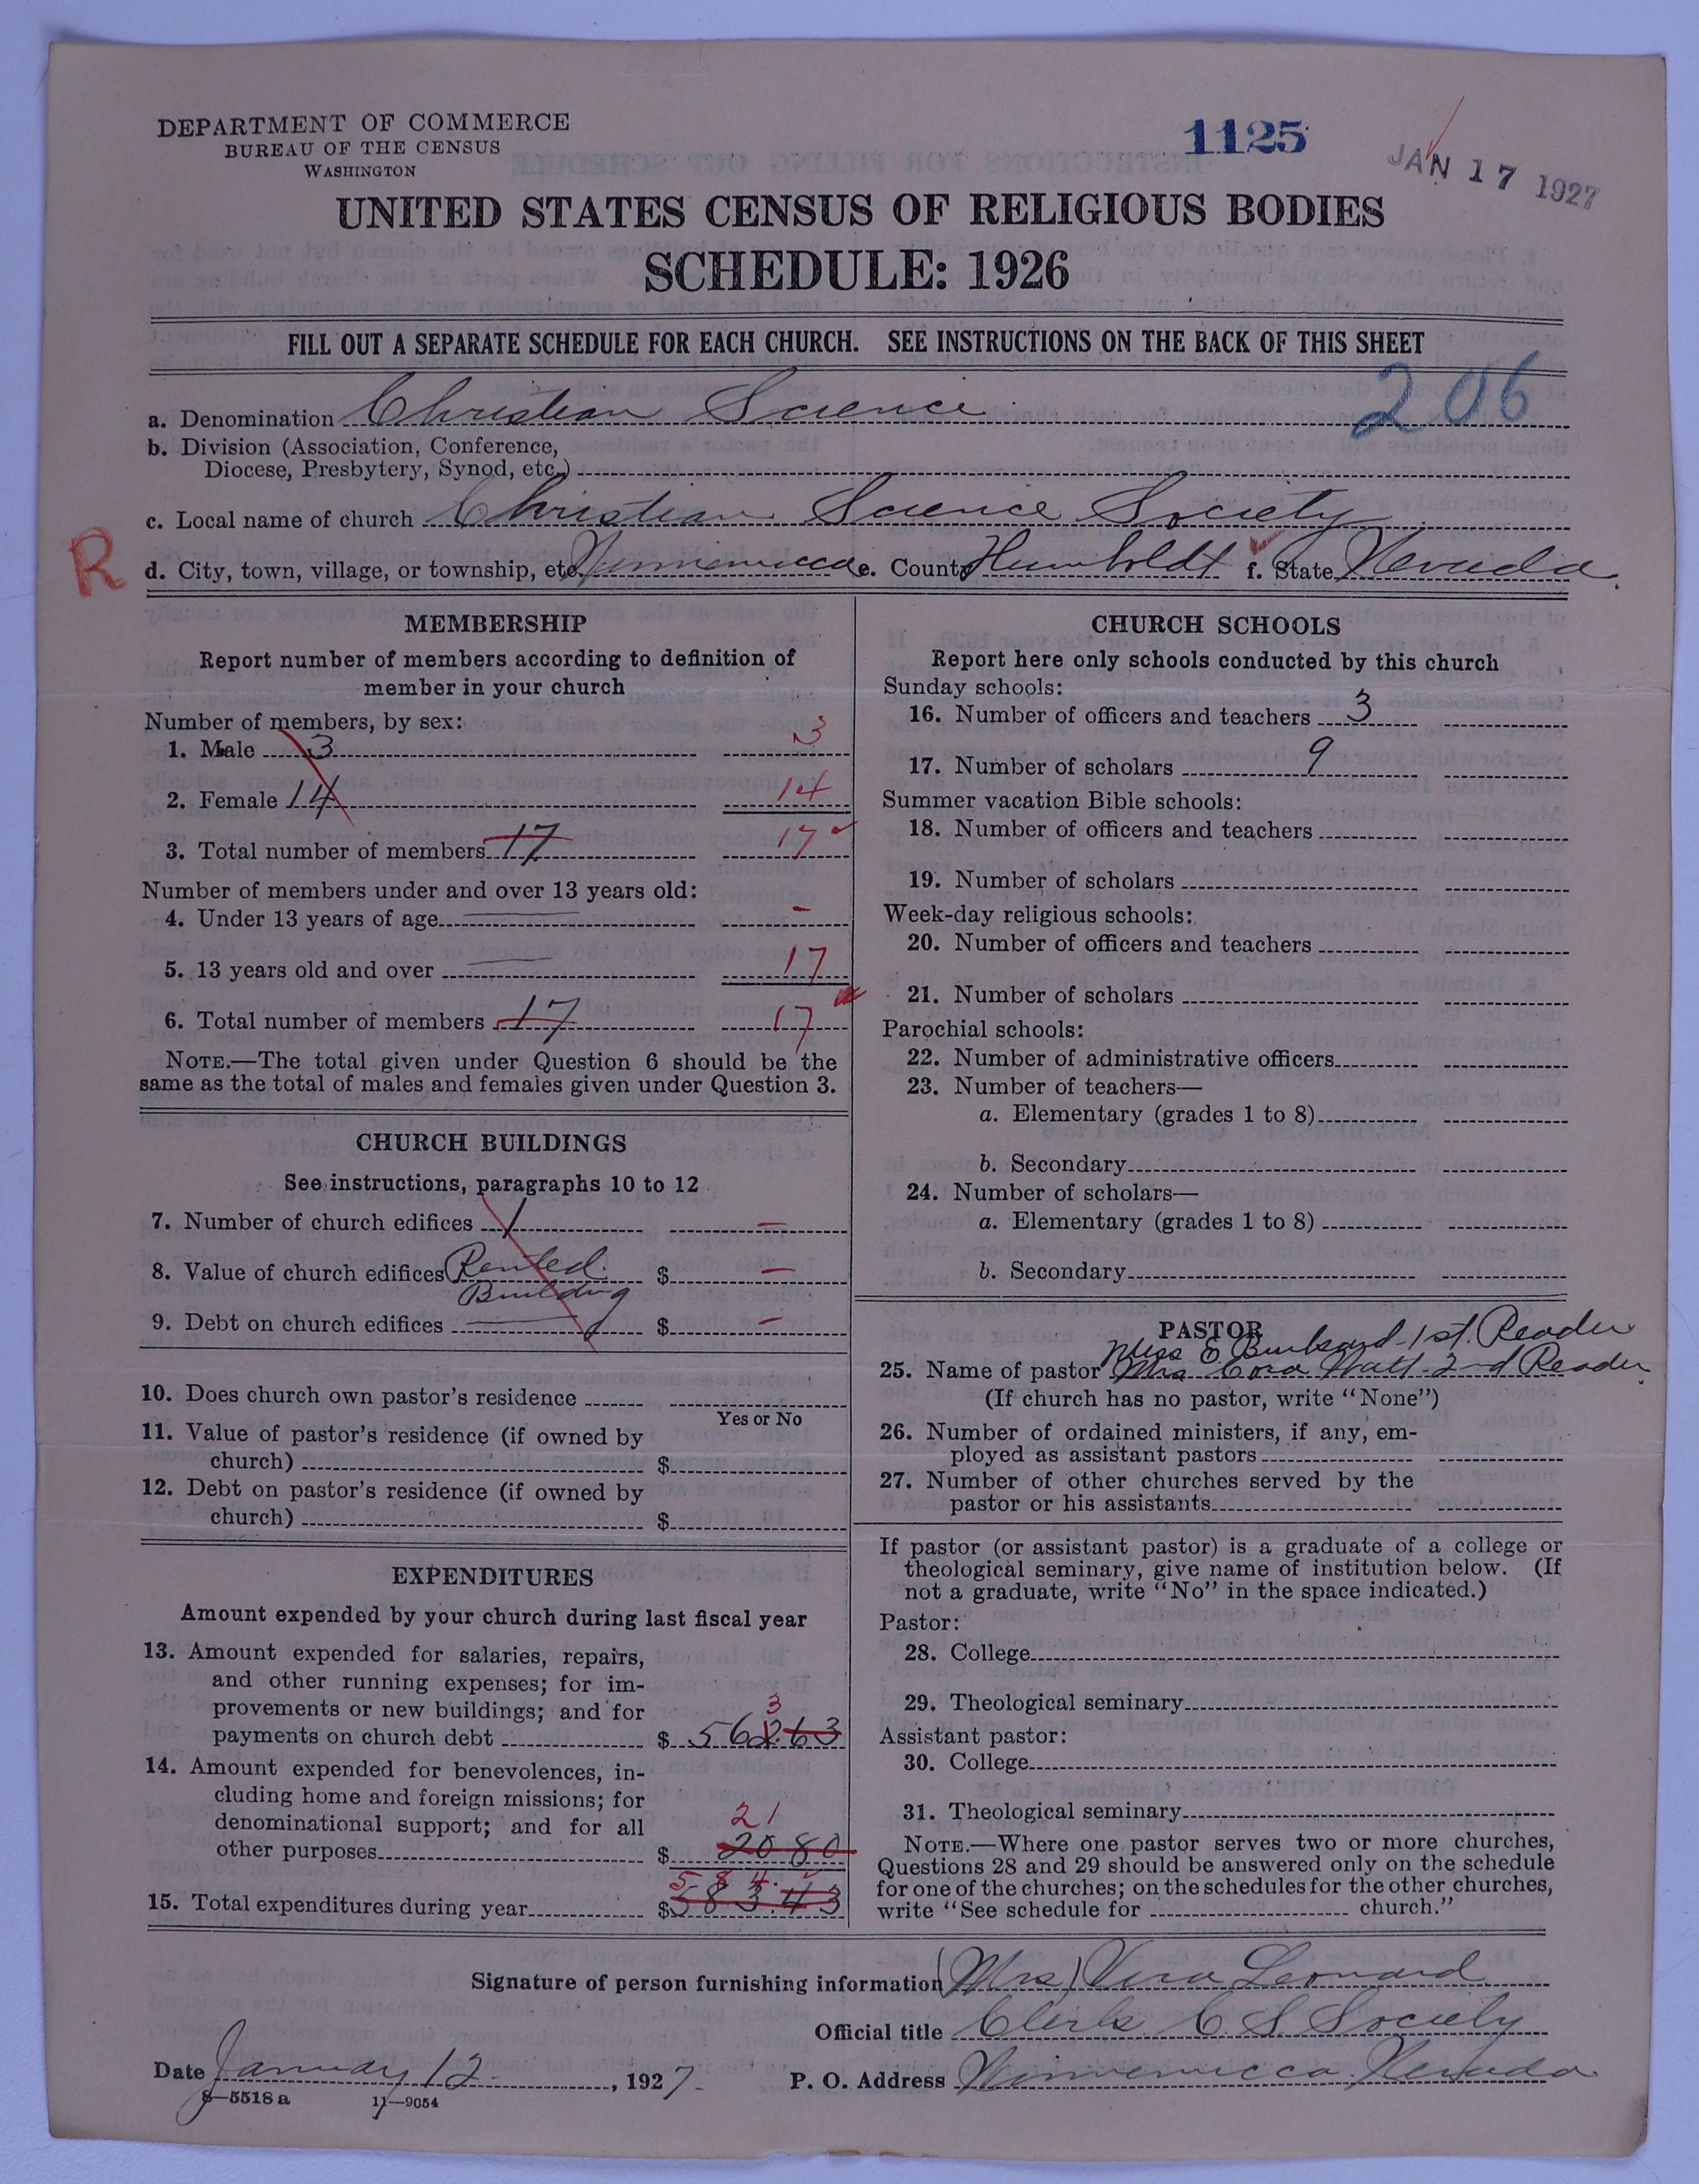 DEPARTMENT OF COMMERCE
BUREAU OF THE CENSUS
WASHINGTON
1125
JAN 17 1927
UNITED STATES CENSUS OF RELIGIOUS BODIES
SCHEDULE: 1926
FILL OUT A SEPARATE SCHEDULE FOR EACH CHURCH. SEE INSTRUCTIONS ON THE BACK OF THIS SHEET
206
a. Denomination Christian Science
b. Division (Association, Conference,
Diocese, Presbytery, Synod, etc.)
c. Local name of church Christian Science Society
R
d. City, town, village, or township, etc. Winnemucca e. County Humboldt f. State Nevada.
MEMBERSHIP
Report number of members according to definition of
member in your church
Number of members, by sex:
1. Male 3 3
2. Female 14 14
3. Total number of members 17 17
Number of members under and over 13 years old:
4. Under 13 years of age -
5. 13 years old and over 17
6. Total number of members 17 17
NOTE.—The total given under Question 6 should be the
same as the total of males and females given under Question 3.
CHURCH BUILDINGS
See instructions, paragraphs 10 to 12
7. Number of church edifices 1 —
8. Value of church edifices Rented. $ —
Building
9. Debt on church edifices $ —
10. Does church own pastor's residence
Yes or No
11. Value of pastor's residence (if owned by
church) $
12. Debt on pastor's residence (if owned by
church) $
EXPENDITURES
Amount expended by your church during last fiscal year
13. Amount expended for salaries, repairs,
and other running expenses; for im-
provements or new buildings; and for
3
payments on church debt $ 562.63
14. Amount expended for benevolences, in-
cluding home and foreign missions; for
denominational support; and for all
21
other purposes $ 20 80
584.
15. Total expenditures during year $ 583.43
CHURCH SCHOOLS
Report here only schools conducted by this church
Sunday schools:
16. Number of officers and teachers 3
17. Number of scholars 9
Summer vacation Bible schools:
18. Number of officers and teachers
19. Number of scholars
Week-day religious schools:
20. Number of officers and teachers
21. Number of scholars
Parochial schools:
22. Number of administrative officers
23. Number of teachers—
a. Elementary (grades 1 to 8)
b. Secondary
24. Number of scholars—
a. Elementary (grades 1 to 8)
b. Secondary
PASTOR
Miss E 1st. Reader
25. Name of pastor Mrs Cora 2nd Reader.
(If church has no pastor, write "None")
26. Number of ordained ministers, if any, em-
ployed as assistant pastors
27. Number of other churches served by the
pastor or his assistants
If pastor (or assistant pastor) is a graduate of a college or
theological seminary, give name of institution below. (If
not a graduate, write "No" in the space indicated.)
Pastor:
28. College
29. Theological seminary
Assistant pastor:
30. College
31. Theological seminary
NOTE.—Where one pastor serves two or more churches,
Questions 28 and 29 should be answered only on the schedule
for one of the churches; on the schedules for the other churches,
write "See schedule for church."
Signature of person furnishing information (Mrs) Vera Leonard
Official title Clerk C. S. Society
Date January 12. , 1927. P. O. Address Winnemucca. Nevada
8—5518 a 11—9054